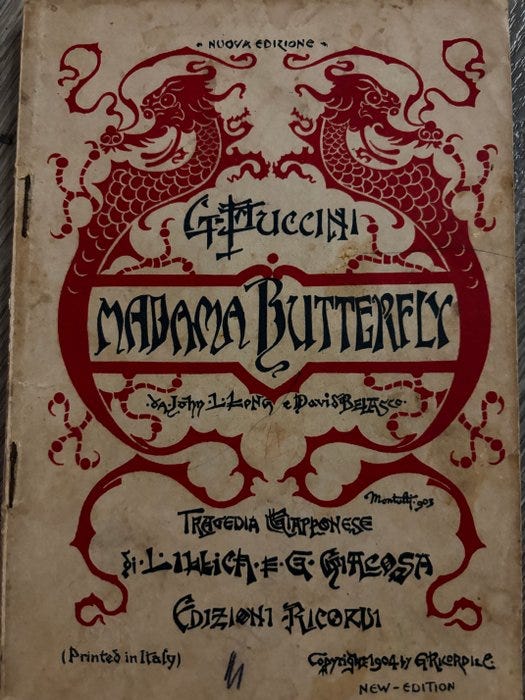 • NUOVA EDIZIONE •
G. PUCCINI
MADAMA BUTTERFLY
da John L. Long e David Belasco.
Montalti. 903
TRAGEDIA GIAPPONESE
di · L · ILLICA · E · G · GIACOSA
EDIZIONI RICORDI
(Printed in Italy)
Copyright 1904 by G. RICORDI & C.
NEW-EDITION